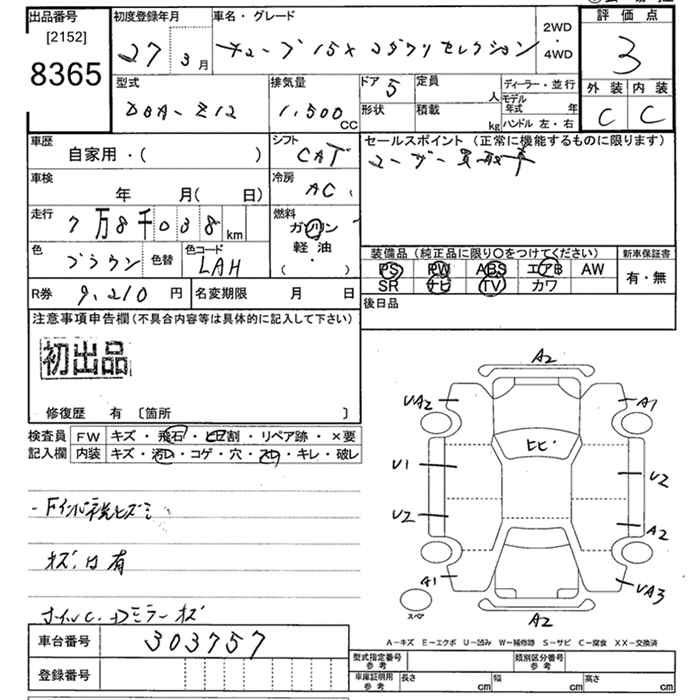 出品番号
[2152]
8365
初度登録年月
27 3月
車名・グレード
キューブ 15X コダワリセレクション
2WD
・
4WD
評価点
3
外装 内装
C C
型式
DBA-Z12
排気量
1,500 CC
ドア 5
形状
定員 人
積載 kg
ディーラー・並行
モデル年式 年
ハンドル 左・右
車歴
自家用・( )
シフト
CAT
セールスポイント (正常に機能するものに限ります)
ユーザー買取車
車検
年 月( 日)
冷房
AC
走行
7万8千038 km
燃料
ガソリン
軽油
( ・ )
色
ブラウン
色替
色コード
LAH
装備品 (純正品に限り○をつけてください)
PS PW ABS エアB AW
SR ナビ TV カワ
新車保証書
有・無
R券 9,210 円
名変期限 月 日
後日品
注意事項申告欄 (不具合内容等は具体的に記入して下さい)
初出品
修復歴 有 〔箇所 〕
検査員
記入欄
FW キズ・飛石・ヒビ割・リペア跡・×要
内装 キズ・汚れ・コゲ・穴・スレ・キレ・破レ
キズ、凹有
A2
UA2
A1
ヒビ
U1
U2
U2
A2
A1
UA3
スペア
A2
A-キズ E-エクボ U-凹み W-補修跡 S-サビ C-腐食 XX-交換済
車台番号 303757
登録番号
型式指定番号
参考
類別区分番号
参考
車庫証明用
参考
長さ cm
幅 cm
高さ cm